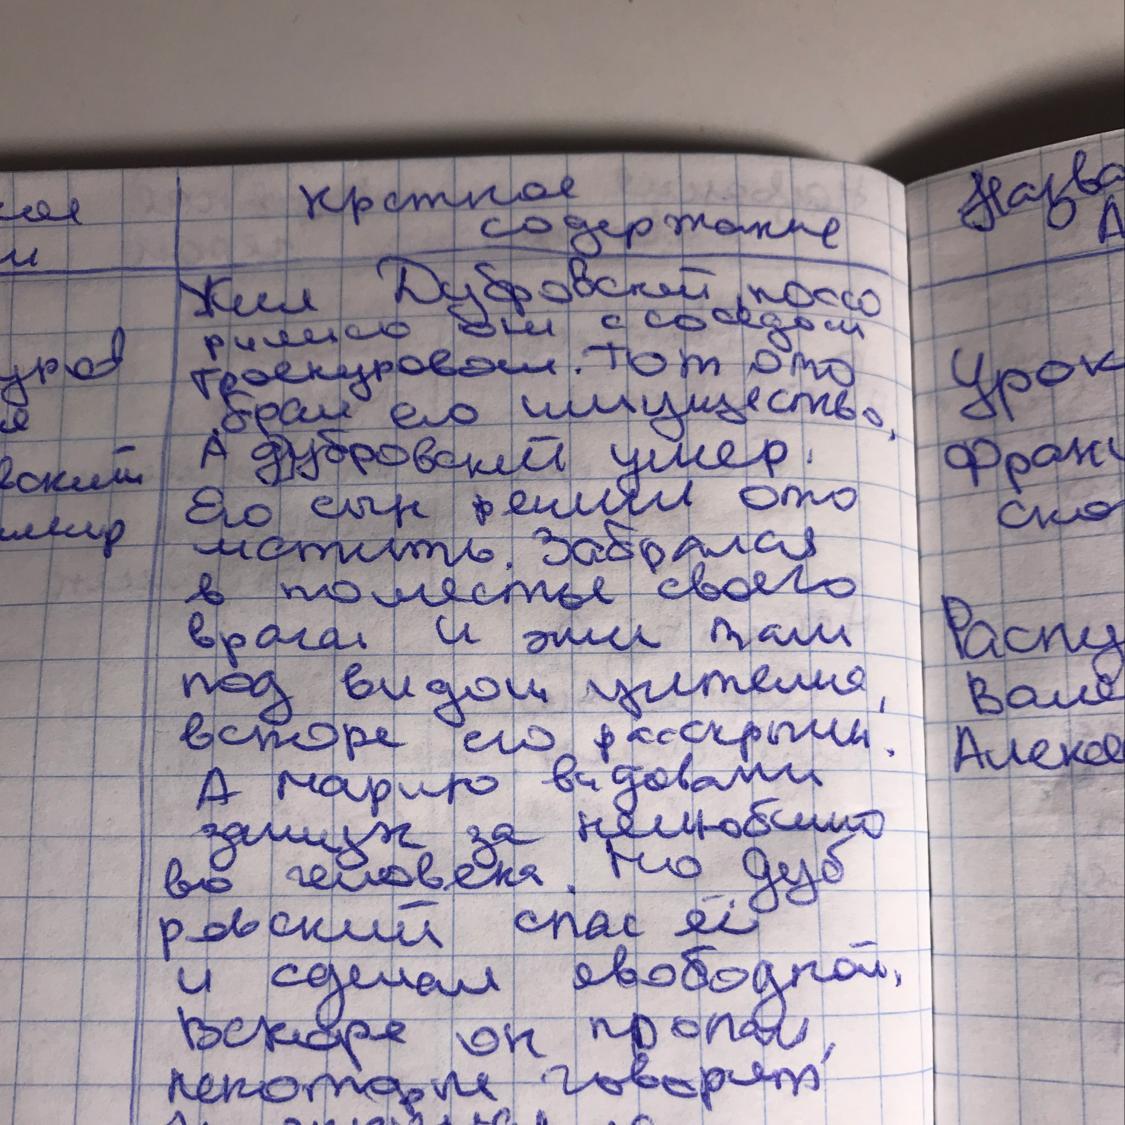 Краткое
содержание
Жил Дубровский, поссо
рился он с соседом
Троекуровом. Тот ото
брал его имущество,
А Дубровский умер.
Его сын решил ото
мстить. Забрался
в поместье своего
врага. И жил там
под видом учителя,
вскоре его расскрыли.
А Марию выдовали
замуж за нелюбимо
во человека. Но Дуб
ровский спас её
и сделал свободной,
Вскоре он пропал,
некоторые говорят
уров
я
вский
имир
Назва
А
Урок
Франц
ско
Распу
Вале
Алексе